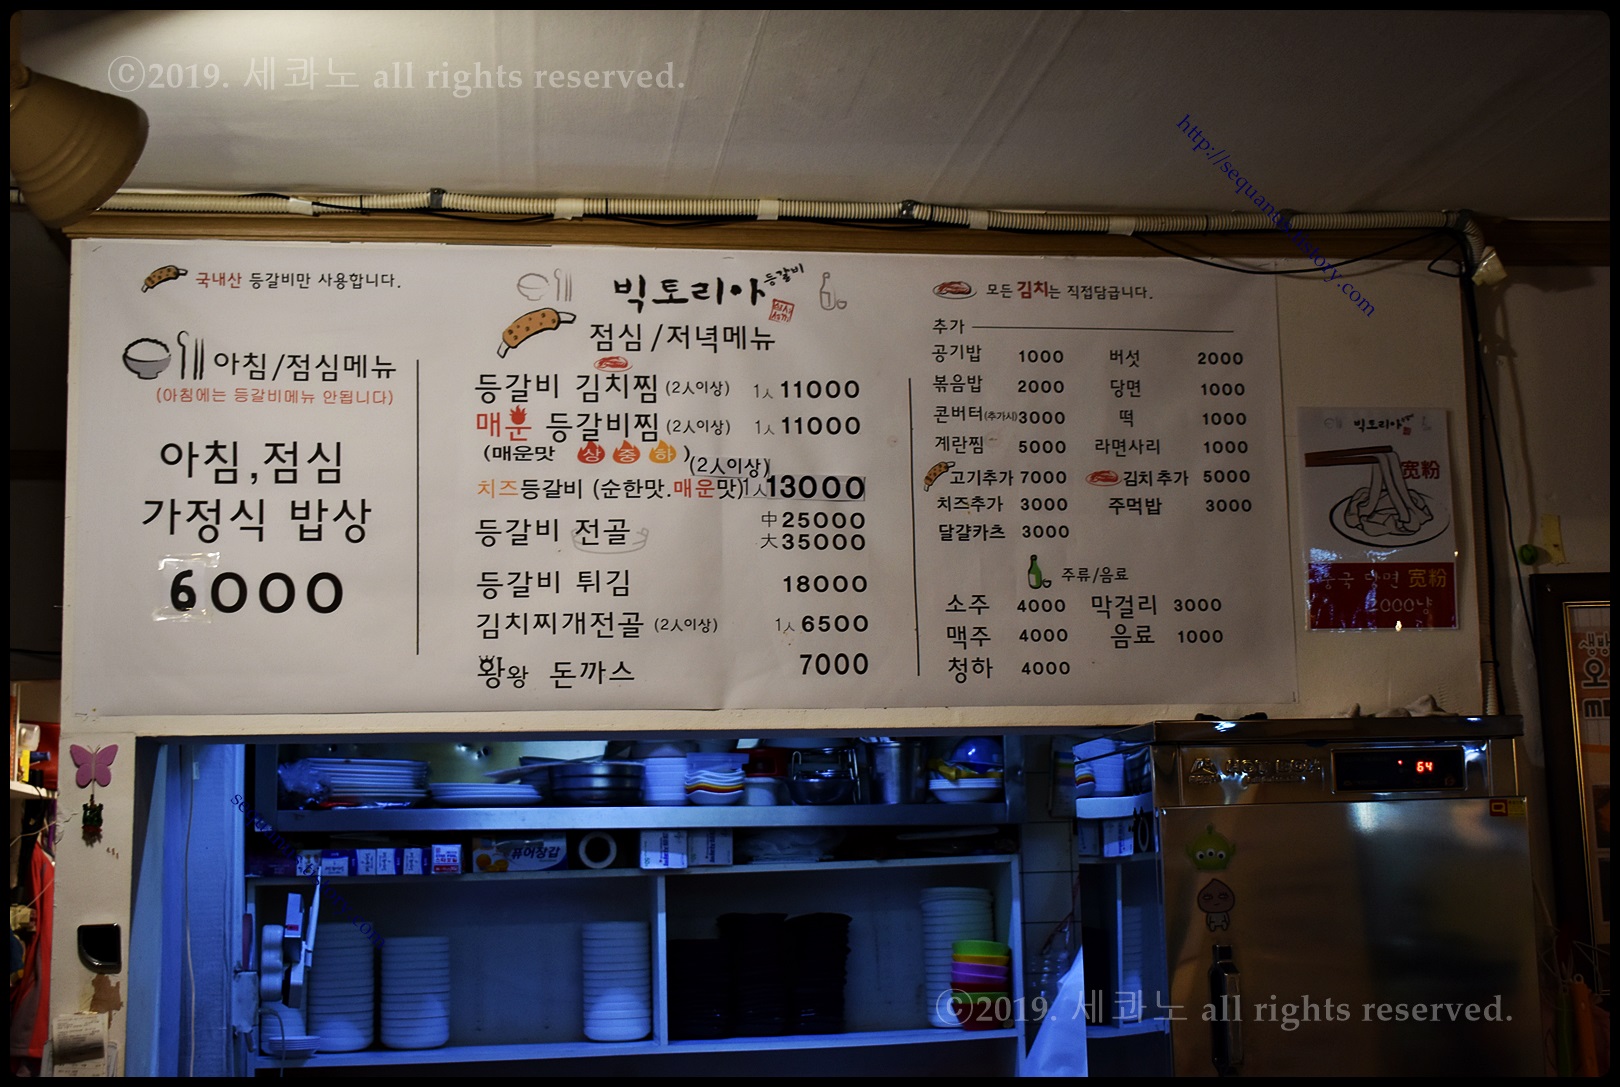 ©2019. 세콰노 all rights reserved.
국내산 등갈비만 사용합니다.
아침/점심메뉴
(아침에는 등갈비메뉴 안됩니다)
아침,점심
가정식 밥상
6000
빅토리아 등갈비
점심/저녁메뉴
등갈비 김치찜 (2人이상) 1人 11000
매운 등갈비찜 (2人이상) 1人 11000
(매운맛 상 중 하)
(2人이상)
치즈등갈비 (순한맛.매운맛) 1人 13000
등갈비 전골 中 25000
大 35000
등갈비 튀김 18000
김치찌개전골 (2人이상) 1人 6500
왕왕 돈까스 7000
모든 김치는 직접담급니다.
추가
공기밥 1000 버섯 2000
볶음밥 2000 당면 1000
콘버터(추가시) 3000 떡 1000
계란찜 5000 라면사리 1000
고기추가 7000 김치추가 5000
치즈추가 3000 주먹밥 3000
달걀카츠 3000
주류/음료
소주 4000 막걸리 3000
맥주 4000 음료 1000
청하 4000
빅토리아
宽粉
중국 당면 宽粉
2000냥
64
퓨어장갑
©2019. 세콰노 all rights reserved.